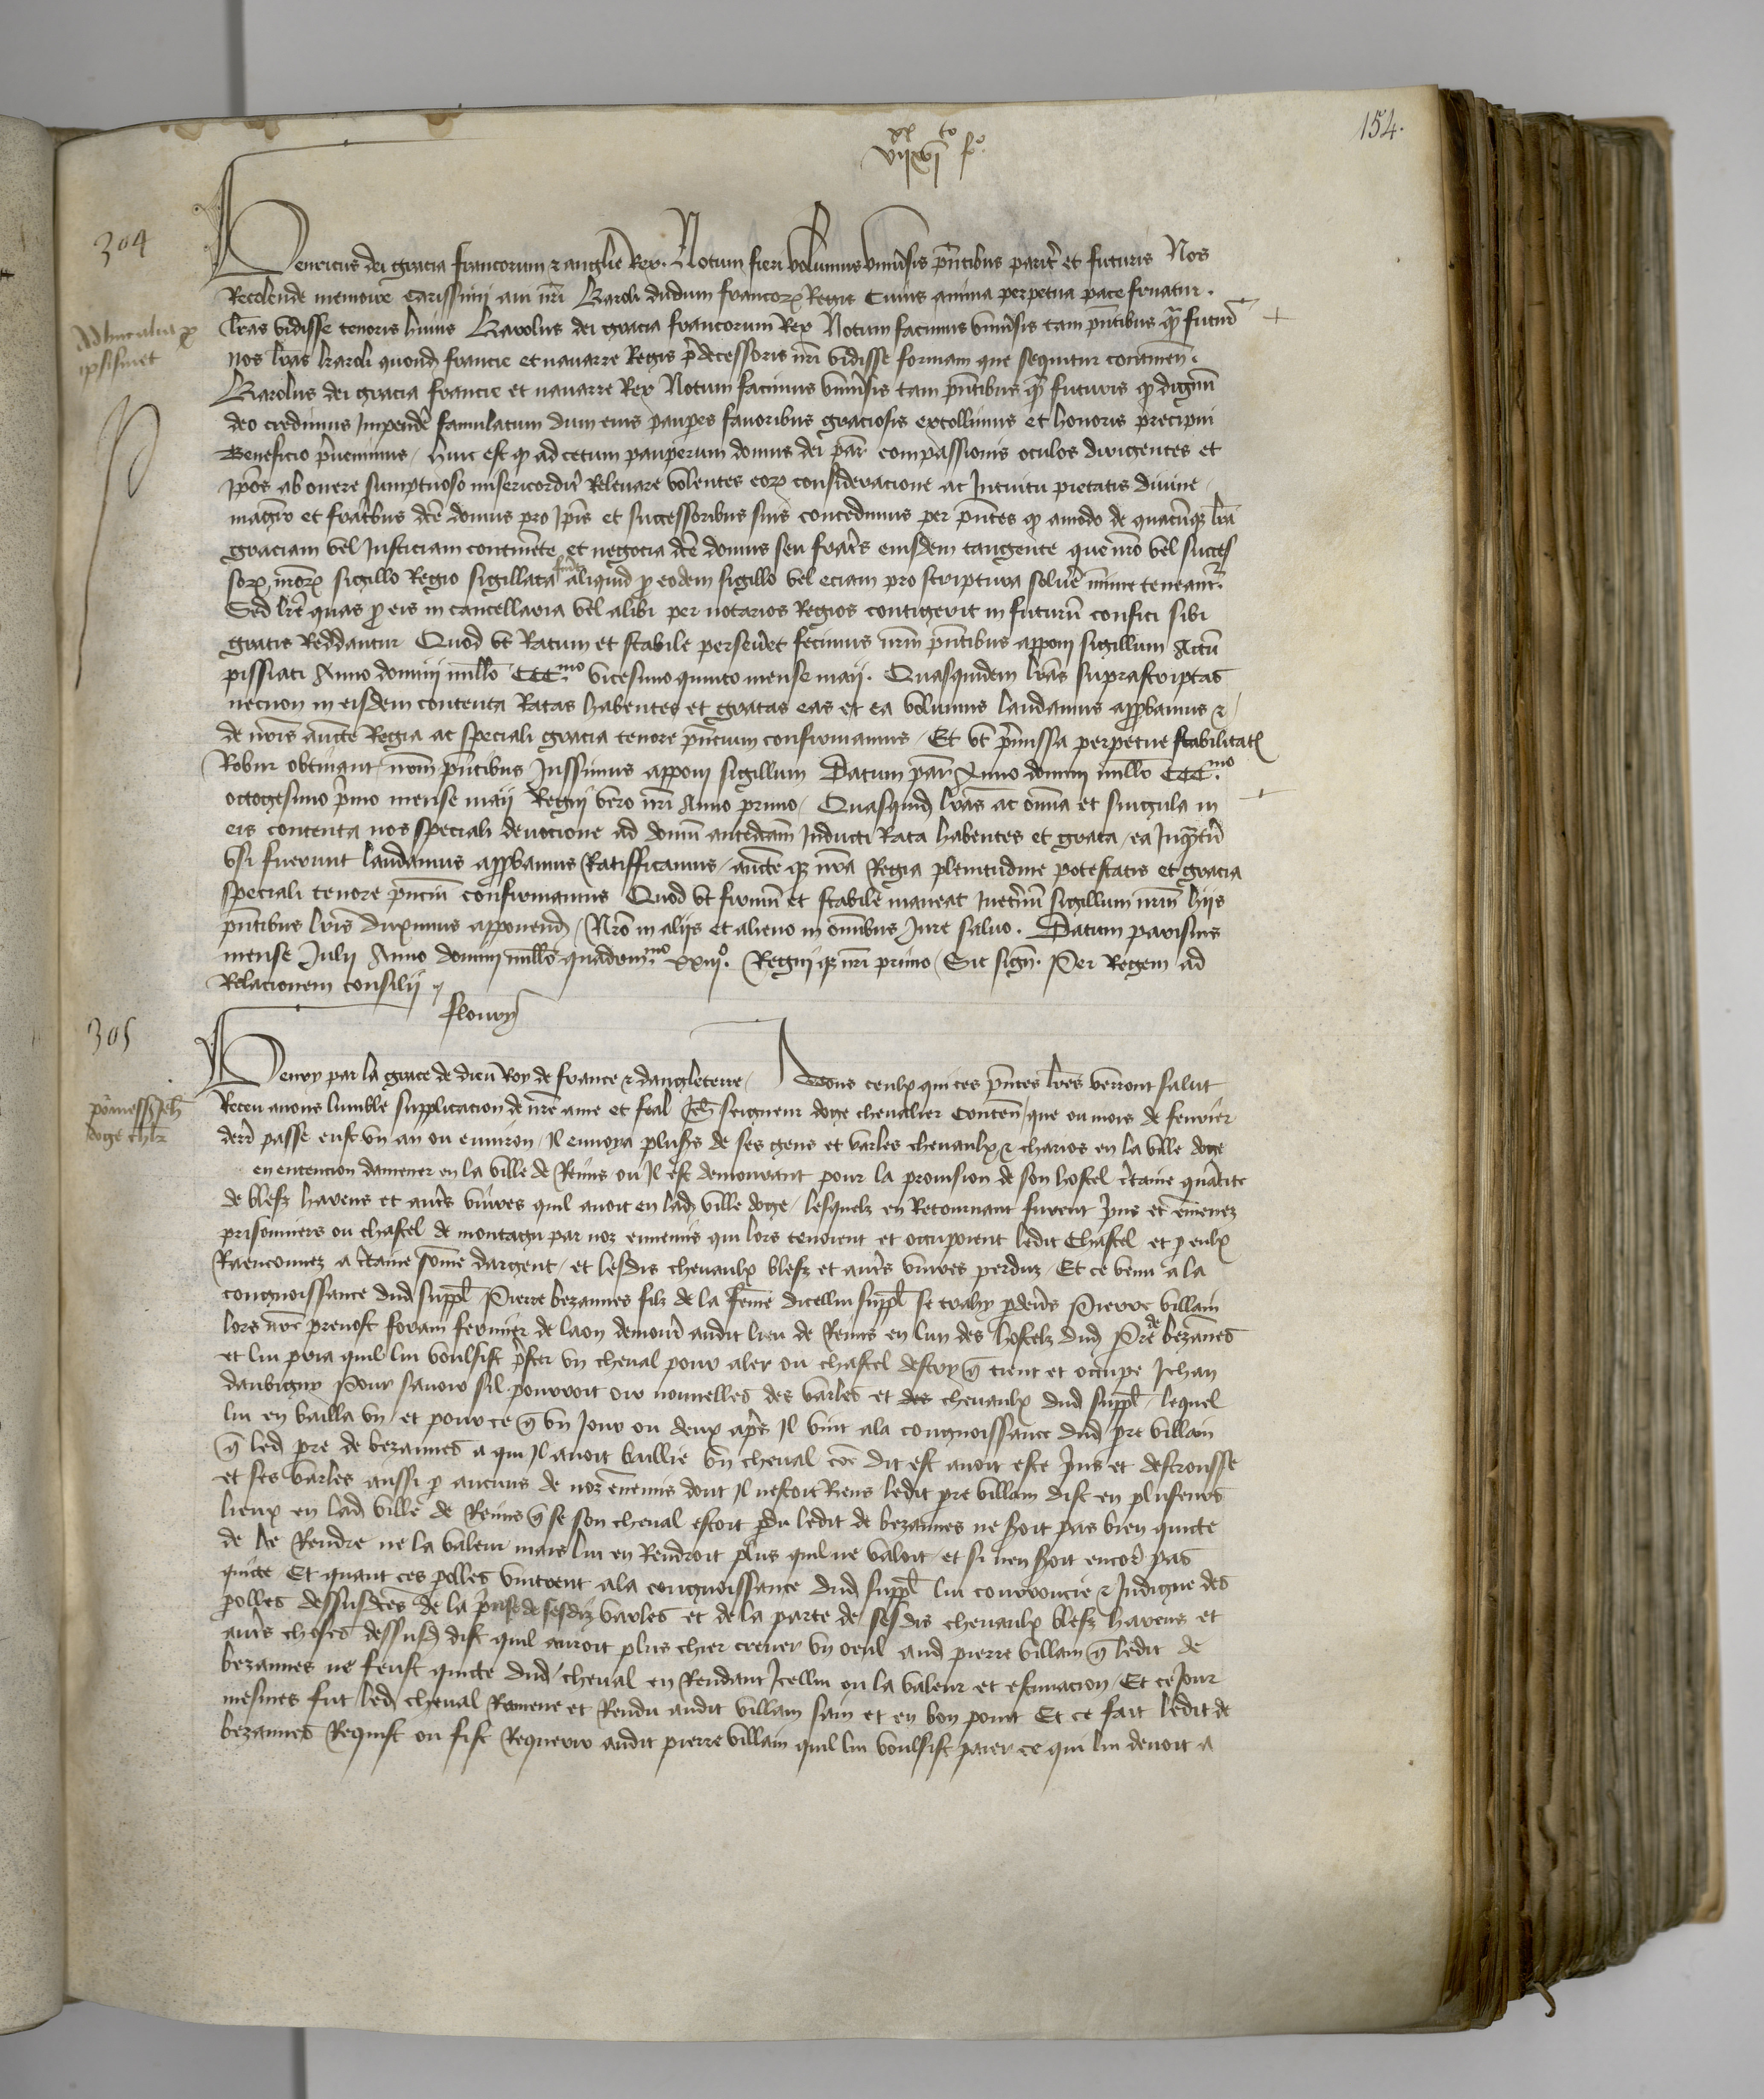 154.
VIIxxXIIIIto fo
304
Henricus dei gracia francorum & anglie Rex. Notum fieri volumus universis pñtibus parit̾ et futuris Nos
Recolende memorie carissimi avi nr̃i Karoli dudum francoꝝ Regis Cuius anima perpetua pace fruatur .
lr̃as vidisse tenoris huius Karolus dei gracia francorum Rex Notum facimus univ̾sis tam pñtibus q̃ futur̾
Adhuc alia ꝓ
ipsismet
nos lr̃as karoli quond̃ francie et navarre Regis p̾decessoris nr̃i vidisse formam que sequitur continen̾.
Karolus dei gracia francie et navarre Rex Notum facimus univ̾sis tam pñtibus q̃ futuris ꝙ dignũ
deo credimus Impend̾e famulatum dum eius paup̾es favoribus graciosis extollimus et honoris precipui
Beneficio p̾venimus / hinc est ꝙ ad cetum pauperum domus dei par̾ compassionis oculos dirigentes et
Ip̃os ab onere sumptuoso misericordit̾ Relevare volentes eoꝝ consideracione ac Intuitu pietatis divine
magr̃o et fratribus dc̃e domus pro Ip̃is et successoribus suis concedimus per pñtes ꝙ amodo de quacũqꝫ lr̃a
graciam vel Justiciam continẽte et negocia dc̃e domus seu frat̾s eiusdem tangente que nr̃o vel succes
soꝝ nr̃oꝝ sigillo Regio sigillata fu̾it aliquid ꝓ eodem sigillo vel eciam pro scriptura solv̾e mi̾me teneant̾.
Sed lr̃e quas ꝓ eis in cancellaria vel alibi per notarios Regios contigerit in futurũ confici sibi
gratis Reddantur Quod ut Ratum et stabile persev̾et fecimus nr̃m pñtibus apponi sigillum Actũ
pissiaci Anno domini mill̃o CCC.mo vicesimo quinto mense maij. Quasquidem lr̃as suprascriptas
necnon in eisdem contenta Ratas habentes et gratas eas et ea volumus laudamus approbamus &
de nr̃is auct̃e Regia ac speciali gracia tenore pñcium confirmamus / Et ut p̾missa perpetue stabilitatꝭ
Robur obtineant nr̃m pñtibus Jussimus apponi sigillum Datum par̾ Anno domini mill̃o CCC.mo
octogesimo p̾mo mense maij Regni vero nr̃i Anno primo / Quasquid̃ lr̃as ac om̃ia et singula in
eis contenta nos speciali devocione ad domũ antedc̃am Inducti Rata habentes et grata / ea Inq̃tũ
usi fuerunt laudamus approbamus Ratifficamus / auct̃e qꝫ nr̃a Regia plenitudine potestatis et gracia
speciali tenore pñciũ confirmamus Quod ut firmũ et stabile maneat Inet̾nũ sigillum nr̃m hijs
pñtibus lr̃is duximus apponend̃ / Nr̃o in alijs et alieno in om̃ibus Jure salvo . Datum parisius
mense Julij Anno domini mill̃o quadring.mo xxiijo. Regni qꝫ nr̃i primo / Sic sign̾. Per Regem ad
Relacionem consilij /
Floury
305
Henry par la grace de dieu Roy de france & dangleterre / A Tous ceulx qui ces pñtes lr̃es verront salut
Receu avons lumble supplicacion de nr̃e ame et feal Jeh̃ seigneur doge chevalier Conten̾ / que ou mois de fevrier
po messr̾ Jeh̃
doge chl̃r
derr̾ passe eust un an ou environ / Il envoya plus̾s de ses gens et varles chevaulx & charios en la ville doge
en entencion damener en la ville de Reims ou Il est demourant pour la provision de son hostel c̾taine quãtite
de blefz havens et aut̾s vivres quil avoit en lad̃ ville doge / lesquelz en Retournant furent Prins et em̃enez
prisonniers ou chastel de montagu par noz ennemis qui lors tenoient et occupoient ledit Chastel et ꝑ eulx
Raenconnez a c̾taine som̃e dargent / et lesdis chevaulx blefz et aut̾s vivres perduz / Et ce venu a la
congnoissance dud̃ suppl̃ Pierre bezannes filz de la fem̃e dicellui suppl̃ se trahy ꝑdev̾s Pierre villain
lors nr̃e prevost forain fermier de laon demour̾ audit lieu de Reims en lun des hostelz dud̃ Pr̃e de bezannes
et lui pria quil lui voulsist p̾ster un cheval pour aler ou chastel destry q̃ tient et occupe Jehan
daubigny Pour savoir sil pourroit oir nouvelles des varles et des chevaulx dud̃ suppl̃ / lequel
lui en bailla un / et pour ce q̃ un Jour ou deux ap̾s Il vint ala congnoissance dud̃ pr̃e villain
q̃ led̃ pr̃e de bezannes a qui Il avoit baillie un cheval com̃e dit est avoit este Prins et destrousse
et ses varles aussi ꝑ aucuns de noz ennemis dont Il nestoit Riens / ledit pr̃e villain dist en pluseurs
lieux en lad̃ ville de Reims q̃ se son cheval estoit ꝑdu ledit de bezannes ne s̾oit pas bien quicte
de le Rendre ne la valeur mais lui en Rendroit plus quil ne valoit / et si nen s̾oit encor̾ pas
quicte Et quant ces polles vindrent ala congnoissance dud̃ suppl̃ lui courroucie & Indigne des
polles dessusdc̃es de la p̾nse de sesdiz varles et de la parte de sesdis chevaulx blefz havens et
aut̾s choses dessusd̃ dist quil auroit plus chier crever un oeul aud̃ pierre villain q̃ ledit de
bezannes ne feust quicte dud̃ cheval en Rendant Icellui ou la valeur et estimacion / Et ce Jour
mesmes fut led̃ cheval Ramene et Rendu audit villain sain et en bon point Et ce fait ledit de
bezannes Requist ou fist Requerir audit pierre villain quil lui voulsist paier ce qui lui devoit a